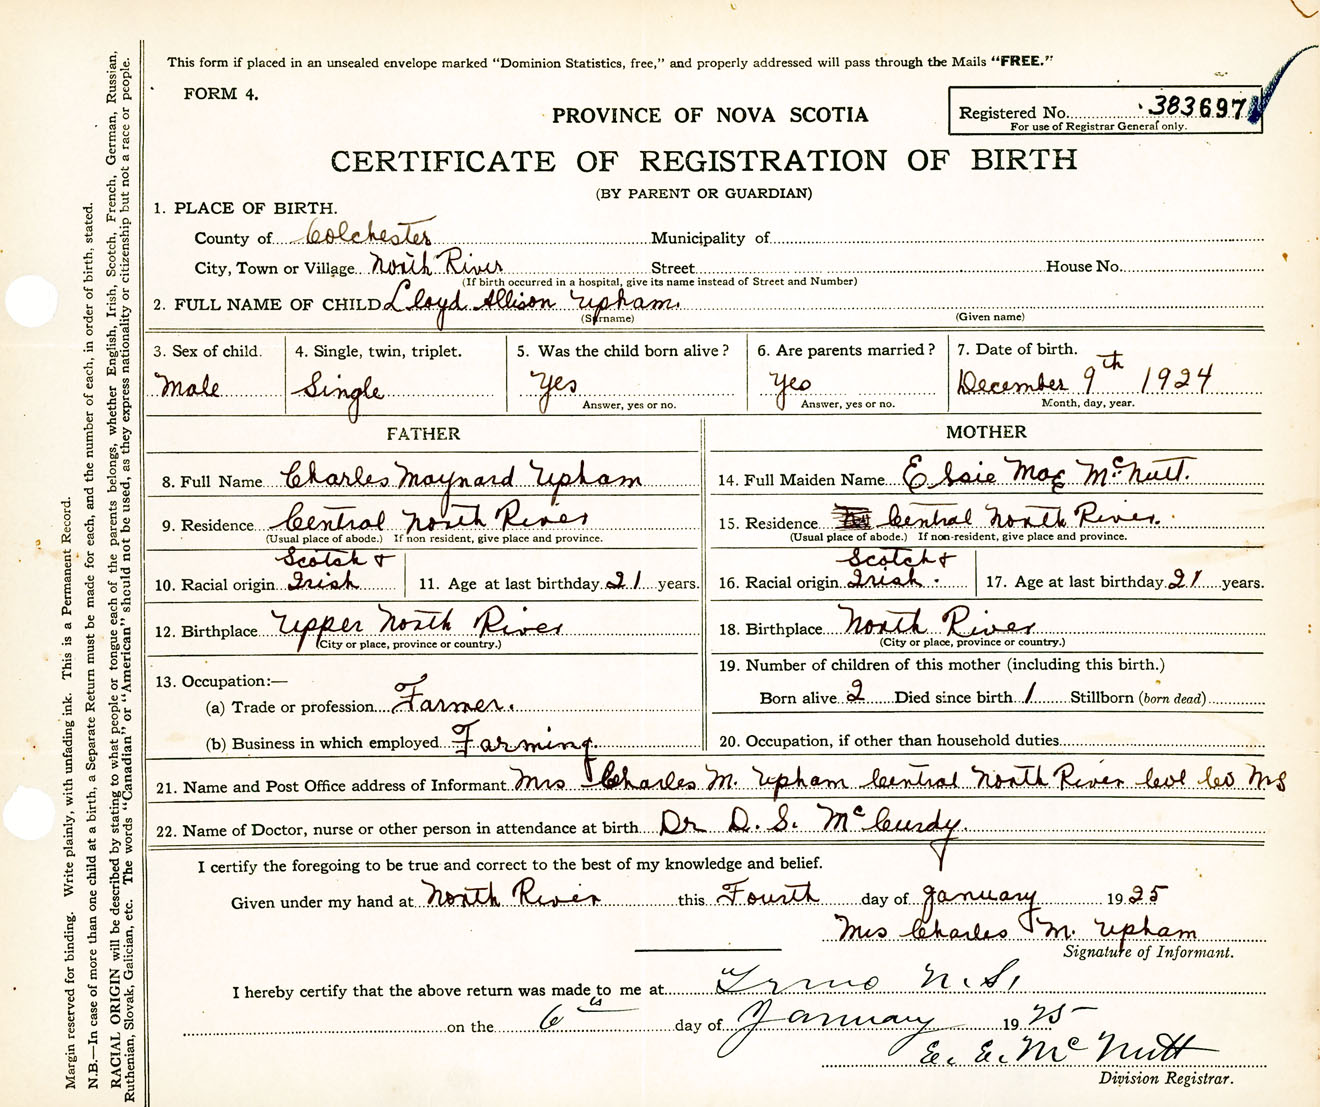 This form if placed in an unsealed envelope marked "Dominion Statistics, free," and properly addressed will pass through the Mails "FREE."
FORM 4.
Registered No. 383697
For use of Registrar General only.
PROVINCE OF NOVA SCOTIA
CERTIFICATE OF REGISTRATION OF BIRTH
(BY PARENT OR GUARDIAN)
1. PLACE OF BIRTH.
County of Colchester Municipality of
City, Town or Village North River Street House No.
(If birth occurred in a hospital, give its name instead of Street and Number)
2. FULL NAME OF CHILD Lloyd Allison Upham.
(Surname) (Given name)
3. Sex of child. 4. Single, twin, triplet. 5. Was the child born alive? 6. Are parents married? 7. Date of birth.
Male Single Yes Yes December 9th 1924
Answer, yes or no. Answer, yes or no. Month, day, year.
FATHER MOTHER
8. Full Name Charles Maynard Upham 14. Full Maiden Name Elsie Mae McNutt.
9. Residence Central North River 15. Residence Central North River.
(Usual place of abode.) If non resident, give place and province. (Usual place of abode.) If non-resident, give place and province.
Scotch & Scotch &
10. Racial origin Irish 11. Age at last birthday 21 years. 16. Racial origin Irish. 17. Age at last birthday 21 years.
12. Birthplace Upper North River 18. Birthplace North River
(City or place, province or country.) (City or place, province or country.)
13. Occupation:— 19. Number of children of this mother (including this birth.)
(a) Trade or profession Farmer. Born alive 2 Died since birth 1 Stillborn (born dead)
(b) Business in which employed Farming. 20. Occupation, if other than household duties
21. Name and Post Office address of Informant Mrs Charles M. Upham Central North River Col Co N.S
22. Name of Doctor, nurse or other person in attendance at birth Dr D. S. McCurdy.
I certify the foregoing to be true and correct to the best of my knowledge and belief.
Given under my hand at North River this Fourth day of January 1925
Mrs Charles M. Upham
Signature of Informant.
I hereby certify that the above return was made to me at N.S.
on the 6th day of January 1925
E. E. McNutt
Division Registrar.
Margin reserved for binding. Write plainly, with unfading ink. This is a Permanent Record.
N.B.—In case of more than one child at a birth, a Separate Return must be made for each, and the number of each, in order of birth, stated.
RACIAL ORIGIN will be described by stating to what people or tongue each of the parents belongs, whether English, Irish, Scotch, French, German, Russian,
Ruthenian, Slovak, Galician, etc. The words "Canadian" or "American" should not be used, as they express nationality or citizenship but not a race or people.